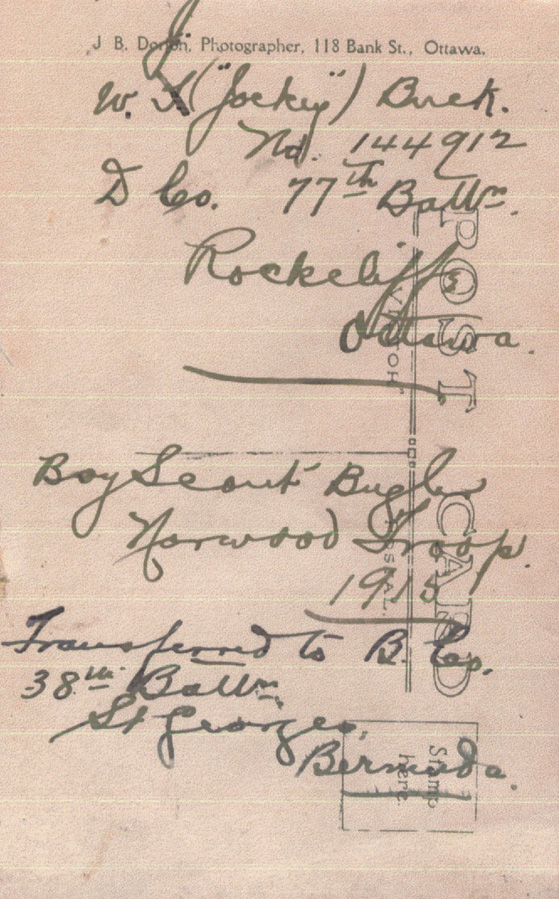 J. B. Dorion, Photographer, 118 Bank St., Ottawa.
W. J. ("Jockey") Buck.
No. 144912
D Co. 77th Battn.
Rockcliffe
Ottawa.
POST CARD
Boy Scout Bugler
Norwood Troop.
1915
Transferred to B. Co.
38th Battn.
St Georges,
Bermuda.
Stamp
here.